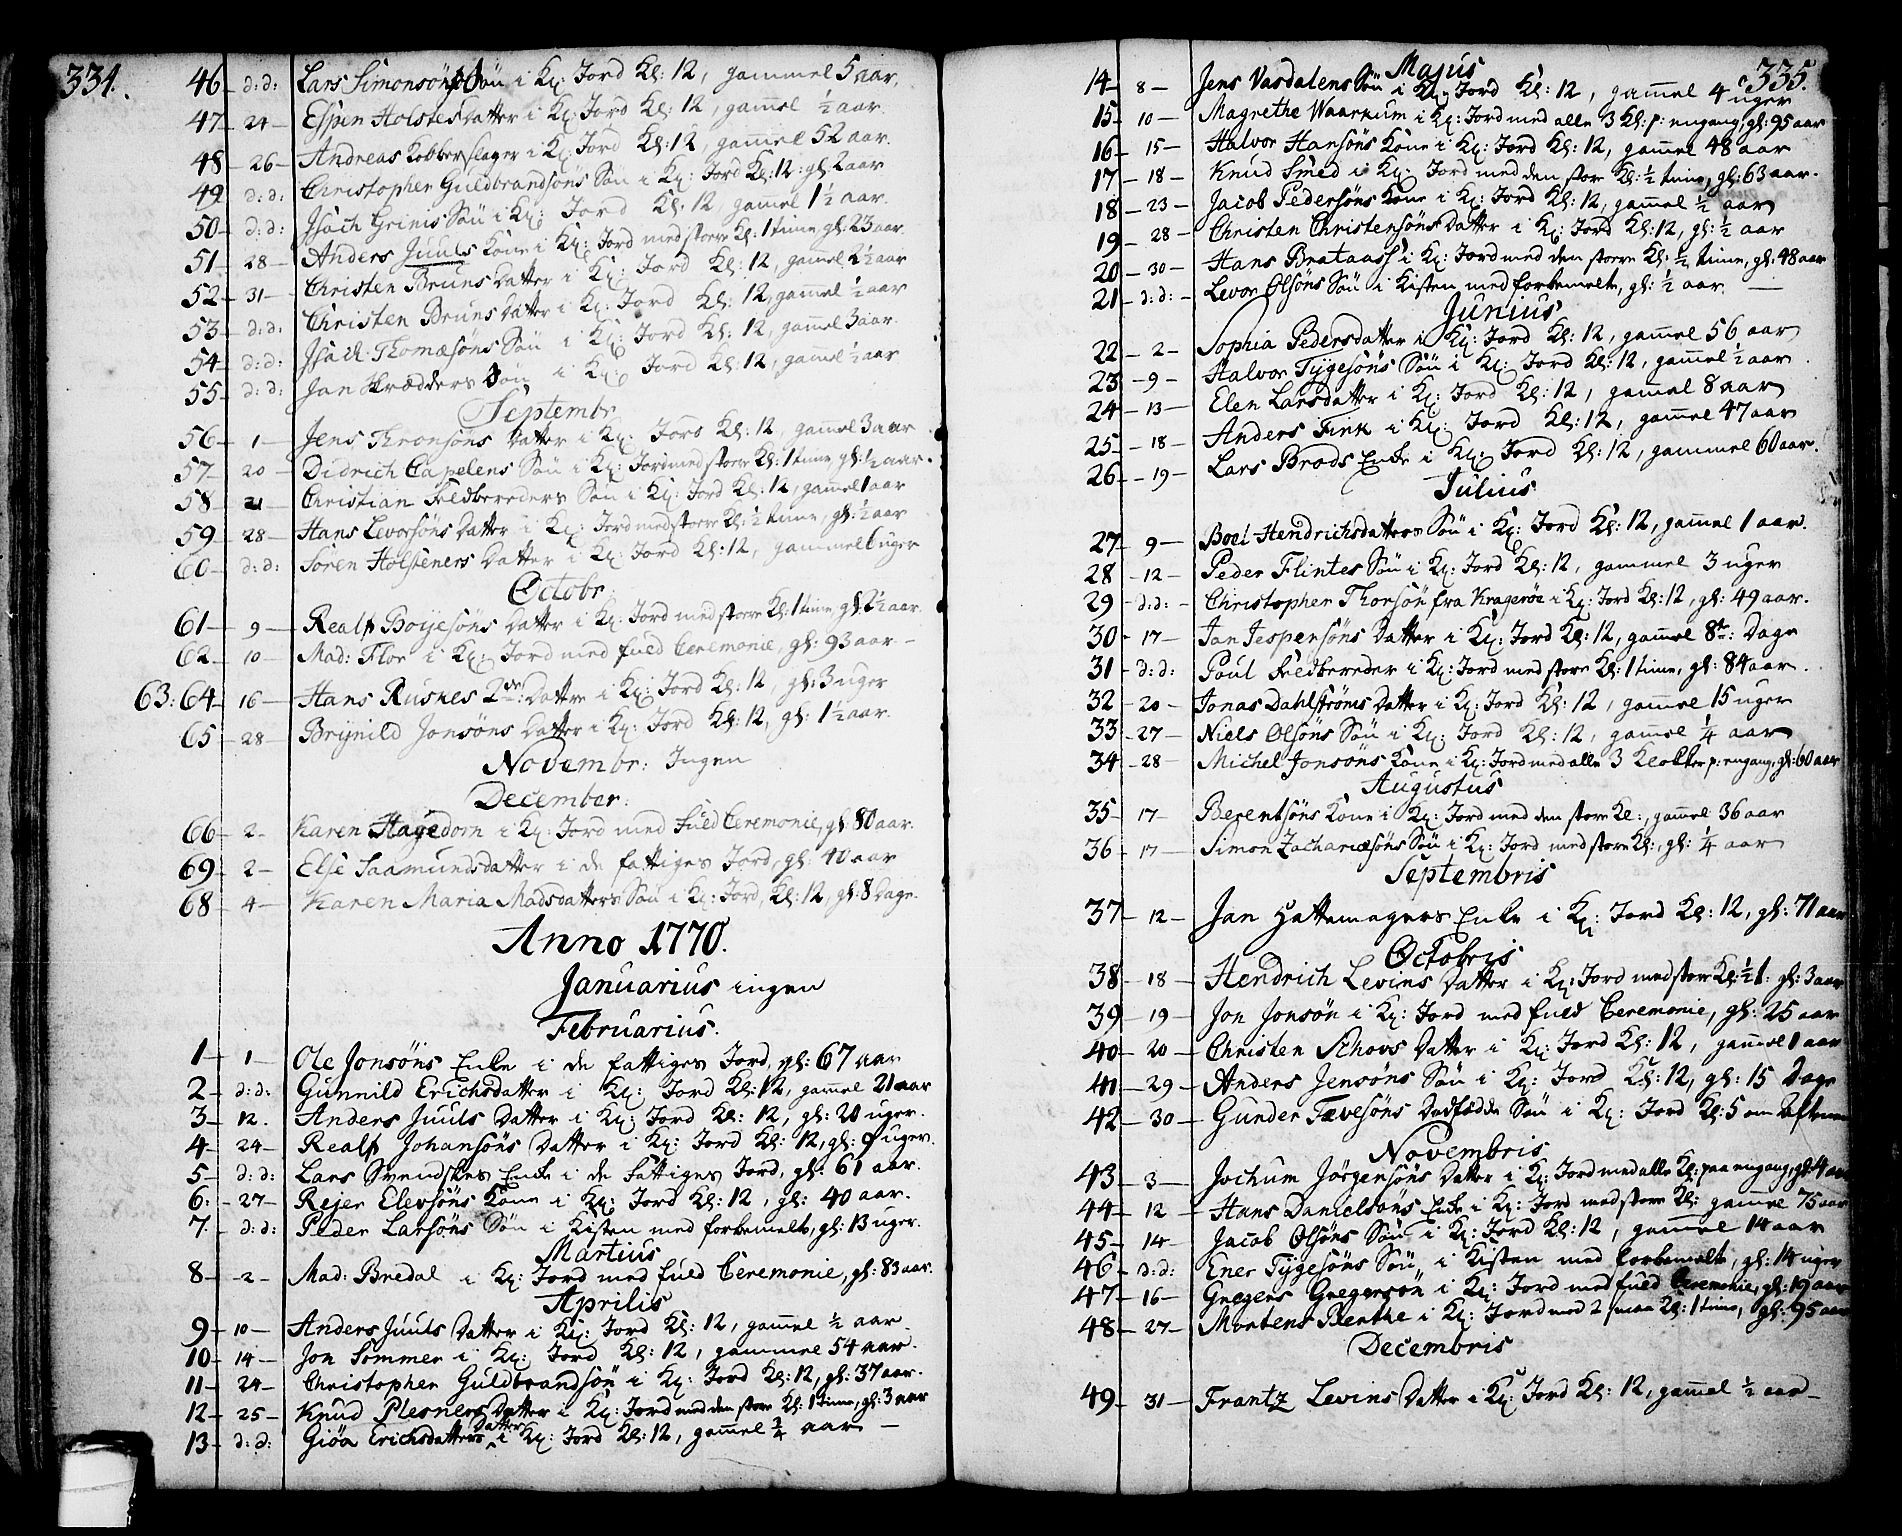 334.
46 - d:d: Lars Simonsöns Sön i Kÿ: Jord Kl: 12, gammel 5 aar.
47 - 24 - Espen Holstes Datter i Kÿ: Jord Kl: 12, gam̅el ½ aar.
48 - 26 - Andreas Kobberslager i Kÿ: Jord Kl: 12, gam̅el 52 aar.
49 - d:d: Christopher Guldbrandsöns Sön i Kÿ: Jord Kl: 12: gl: 2 aar
50 - d:d: Jsach Grinis Sön i Kÿ: Jord Kl: 12, gam̅el 1½ aar.
51 - 28 - Anders Juuls Kone i Kÿ: Jord med store Kl: 1 time gl: 23 aar.
52 - 31 - Christen Bruns Datter i Kÿ: Jord Kl: 12, gam̅el 2½ aar
53 - d:d: Christen Bruns Datter i Kÿ: Jord Kl: 12, gam̅el ½ aar
54 - d:d: Jsach Thomæsöns Sön i Kÿ: Jord Kl: 12, gam̅el 3 aar.
55 - d:d: Jan Skrædders Sön i Kÿ: Jord Kl: 12, gam̅el ½ aar
Septembr
56 - 1 - Jens Thronsöns Datter i Kÿ: Jord Kl: 12, gam̅el 3 aar
57 - 20 - Didrich Capelens Sön i Kÿ: Jord med store Kl: 1 time gl: ½ aar.
58 - 21 Christian Feldbereders Sön i Kÿ: Jord Kl: 12, gam̅el 1 aar
59 - 28 - Hans Levorsöns Datter i Kÿ: Jord med store Kl: ½ time, gl: ½ aar
60 - d:d: Sören Holsteners Datter i Kÿ: Jord Kl: 12, gammel 6 uger
Octobr
61 - 9 - Realf Boÿesöns Datter i Kÿ: Jord med store Kl: 1 time, gl: 2½ aar.
62 - 10 - Mad: Flor i Kÿ: Jord med fuld Ceremonie, gl: 93 aar -
63: 64 - 16 - Hans Ruskes 2de Datter i Kÿ: Jord Kl: 12, gl: 3 uger
65 - 28 - Brÿnild Jonsöns Datter i Kÿ: Jord Kl: 12, gl: 1½ aar.
Novembr: Ingen
December:
66 - 2 - Karen Hagedorn i Kÿ: Jord med fuld Ceremonie, gl: 80 aar.
69 - 2 - Else Saamundsdatter i de fattiges Jord, gl: 40 aar
68 - 4 - Karen Maria Madsdatters Sön i Kÿ: Jord, Kl: 12, gl: 8 Dage.
Anno 1770.
Januarius ingen
Februarius.
1 - 1 - Ole Jonsöns Enke i de fattiges Jord, gl: 67 aar
2 - d:d: Gunnild Erichsdatter i Kÿ: Jord Kl: 12, gam̅el 21 aar
3 - 12. Anders Juuls Datter i Kÿ: Jord Kl: 12, gl: 20 uger.
4 - 24 - Realf Johansöns Datter i Kÿ: Jord Kl: 12, gl: 9 uger.
5 - d:d: Lars Svendskes Enke i de fattiges Jord, gl: 61 aar.
6: - 27 - Rejer Elevsöns Kone i Kÿ: Jord Kl: 12, gl: 40 aar.
7 - d:d: Peder Larsöns Sön i Kisten med forbemelte, gl: 13 uger.
Martius
8 - 2 - Mad: Bredal i Kÿ: Jord med fuld Ceremonie, gl: 83 aar.
Aprilis
9 - 10 - Anders Juuls Datter i Kÿ: Jord Kl: 12, gam̅el ½ aar
10 - 14 - Jon Sommer i Kÿ: Jord Kl: 12, gammel 54 aar.
11 - 24 - Christopher Guldbrandsön i Kÿ: Jord Kl: 12, gl: 37 aar.
12 - 25 - Knud Plesners Datter i Kÿ: Jord med den store Kl: 1 time, gl: 3 aar
13 - d:d: Giöa Erichsdatters Datter i Kÿ: Jord Kl: 12, gam̅el ¾ aar -
335.
Majus
14 - 8 - Jens Vasdalens Sön i Kÿ: Jord Kl: 12, gam̅el 4 uger
15 - 10 - Magrethe Waarnum i Kÿ: Jord med alle 3 Kl: p: engang, gl: 95 aar
16 - 15 - Halvor Hansöns Kone i Kÿ: Jord Kl: 12, gam̅el 48 aar
17 - 18 - Knud Smed i Kÿ: Jord med den store Kl: ½ time, gl: 63 aar.
18 - 23 - Jacob Pedersöns Kone i Kÿ: Jord Kl: 12, gam̅el ½ aar
19 - 28 - Christen Christensöns Datter i Kÿ: Jord Kl: 12, gl: ½ aar
20 - 30 - Hans Brataass i Kÿ: Jord med den store Kl: ½ time, gl: 48 aar
21 - d:d: - Levor Olsöns Sön i Kisten med forbemelte, gl: ½ aar. -
Junius
22 - 2 - Sophia Pedersdatter i Kÿ: Jord Kl: 12, gam̅el 56 aar
23 - 9 - Halvor Tÿgesöns Sön i Kÿ: Jord Kl: 12, gam̅el ½ aar
24 - 13 - Elen Larsdatter i Kÿ: Jord Kl: 12, gam̅el 8 aar
25 - 18 - Anders Fink i Kÿ: Jord Kl: 12, gam̅el 47 aar
26 - 19 - Lars Brods Enke i Kÿ: Jord Kl: 12, gammel 60 aar.
Julius
27 - 9 - Boel Hendrichsdatters Sön i Kÿ: Jord Kl: 12, gam̅el 1 aar.
28 - 12 - Peder Flintes Sön i Kÿ: Jord Kl: 12, gammel 3 uger
29 - d:d: - Christopher Thorsön fra Kragerøe i Kÿ: Jord Kl: 12, gl: 49 aar.
30 - 17 - Jan Jespersöns Datter i Kÿ: Jord Kl: 12, gam̅el 8te: Dage
31 - d:d: Poul Feldbereder i Kÿ: Jord med store Kl: 1 time, gl: 84 aar.
32 - 20 - Jonas Dahlströms Datter i Kÿ: Jord Kl: 12, gam̅el 15 uger
33 - 27 - Niels Olsöns Sön i Kÿ: Jord Kl: 12, gam̅el ¼ aar
34 - 28 - Michel Jonsöns Kone i Kÿ: Jord med alle 3 Klokker p: engang, gl: 60 aar
Augustus
35 - 17 - Berentsöns Kone i Kÿ: Jord med den store Kl:, gam̅el 36 aar
36 - 17 - Simon Zachariæsöns Sön i Kÿ: Jord med store Kl:, gl: ¼ aar
Septembris
37 - 12 - Jan Hattemagers Enke i Kÿ: Jord Kl: 12, gl: 71 aar
Octobris
38 - 18 - Hendrich Levins Datter i Kÿ: Jord med store Kl: ½ t: gl: 3 aar
39 - 19 - Jon Jonsön i Kÿ: Jord med fuld Ceremonie, gl: 25 aar
40 - 20 - Christen Schovs Datter i Kÿ: Jord Kl: 12, gam̅el 1 aar
41 - 29 - Anders Jensöns Sön i Kÿ: Jord Kl: 12, gl: 15 Dage
42 - 30 - Gunder Tævesöns Dödfødde Sön i Kÿ: Jord Kl: 5 om Aftenen
Novembris
43 - 3 - Jochum Jörgensöns Datter i Kÿ: Jord med alle Kl: paa engang, gl: 4 aar
44 - 12 - Hans Danielsöns Enke i Kÿ: Jord med store Kl: gam̅el 75 aar
45 - 14 - Jacob Olsöns Sön i Kÿ: Jord Kl: 12, gam̅el 14 aar
46 - d:d: Ener Tÿgesöns Sön, i Kisten med forbemelte, gl: 14 uger
47 - 16 - Gregers Gregersön i Kÿ: Jord med fuld Ceremonie, gl: 19 aar
48 - 27 - Mortens Berthe i Kÿ: Jord med 2 smaa Kl: 1 time, gl: 95 aar
Decembris
49 - 31 - Frantz Levins Datter i Kÿ: Jord Kl: 12, gam̅el ½ aar -